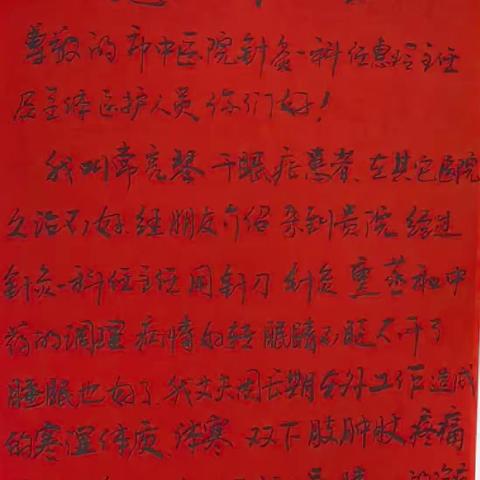 尊敬的市中医院针灸一科任惠玲主任
及全体医护人员你们好！
我叫常亮琴干眼症患者、在其它医院
久治不好、经朋友介绍来到贵院、经过
针灸一科任主任用针刀针灸熏蒸和中
药的调理病情好转眼睛不眨不开了
睡眠也好了、我丈夫因长期在外工作造成
的寒湿体质、体寒、双下肢肿胀疼痛